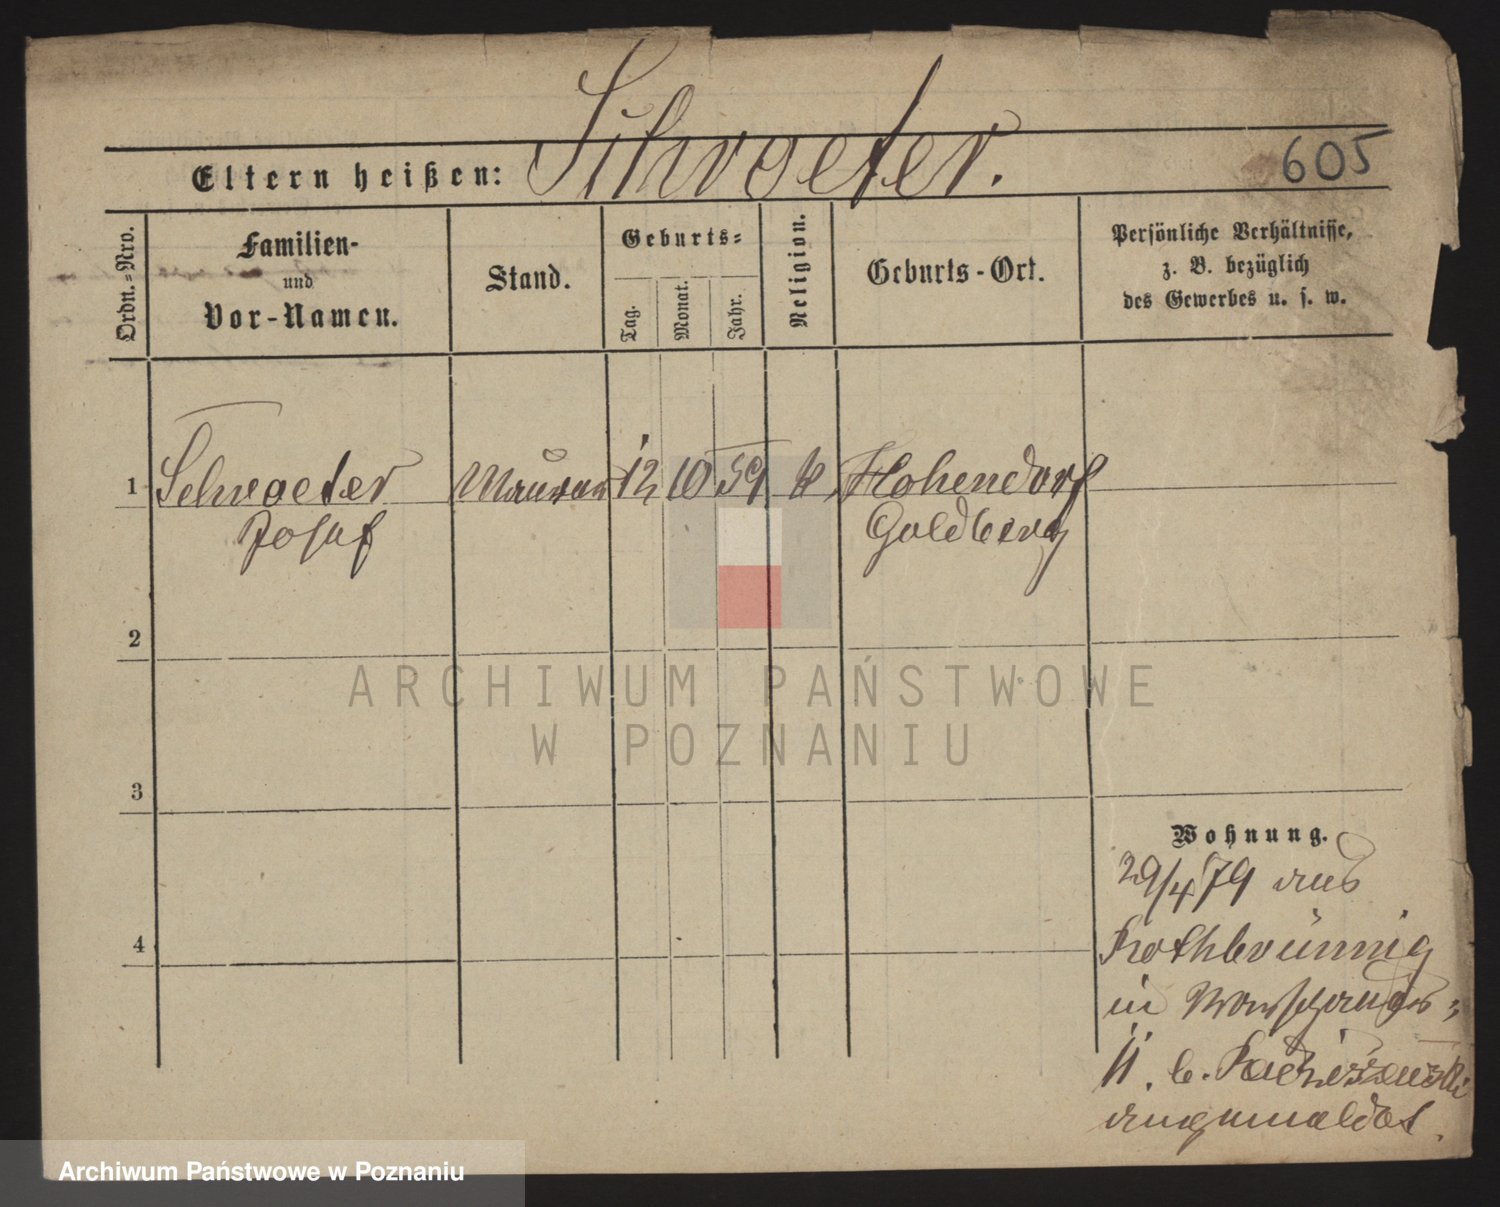 Schroeter.
605
Eltern heißen:
Ordn.-Nro.
Familien-
und
Vor-Namen.
Stand.
Geburts-
Tag.
Monat.
Jahr.
Religion.
Geburts-Ort.
Persönliche Verhältnisse,
z. B. bezüglich
des Gewerbes u. s. w.
1 Schroeter Maurer 12 10 59 k Hohendorf
Josef Goldberg
2
3
4
Wohnung.
29/4 79 aus
Rothbrünnig
in
11. b.
angemeldet.
ARCHIWUM PAŃSTWOWE
W POZNANIU
Archiwum Państwowe w Poznaniu